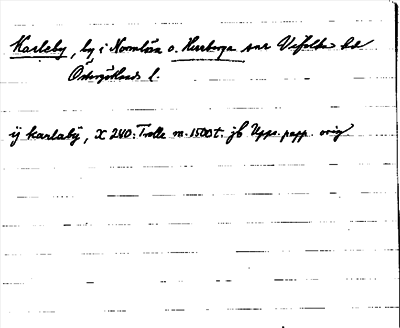 Karleby, by i Normlösa o. Herrberga snr Vifolka hd
Östergötlands l.
ij karlaby, X 240: Trolle m. 1500t. jb Upps. papp. orig